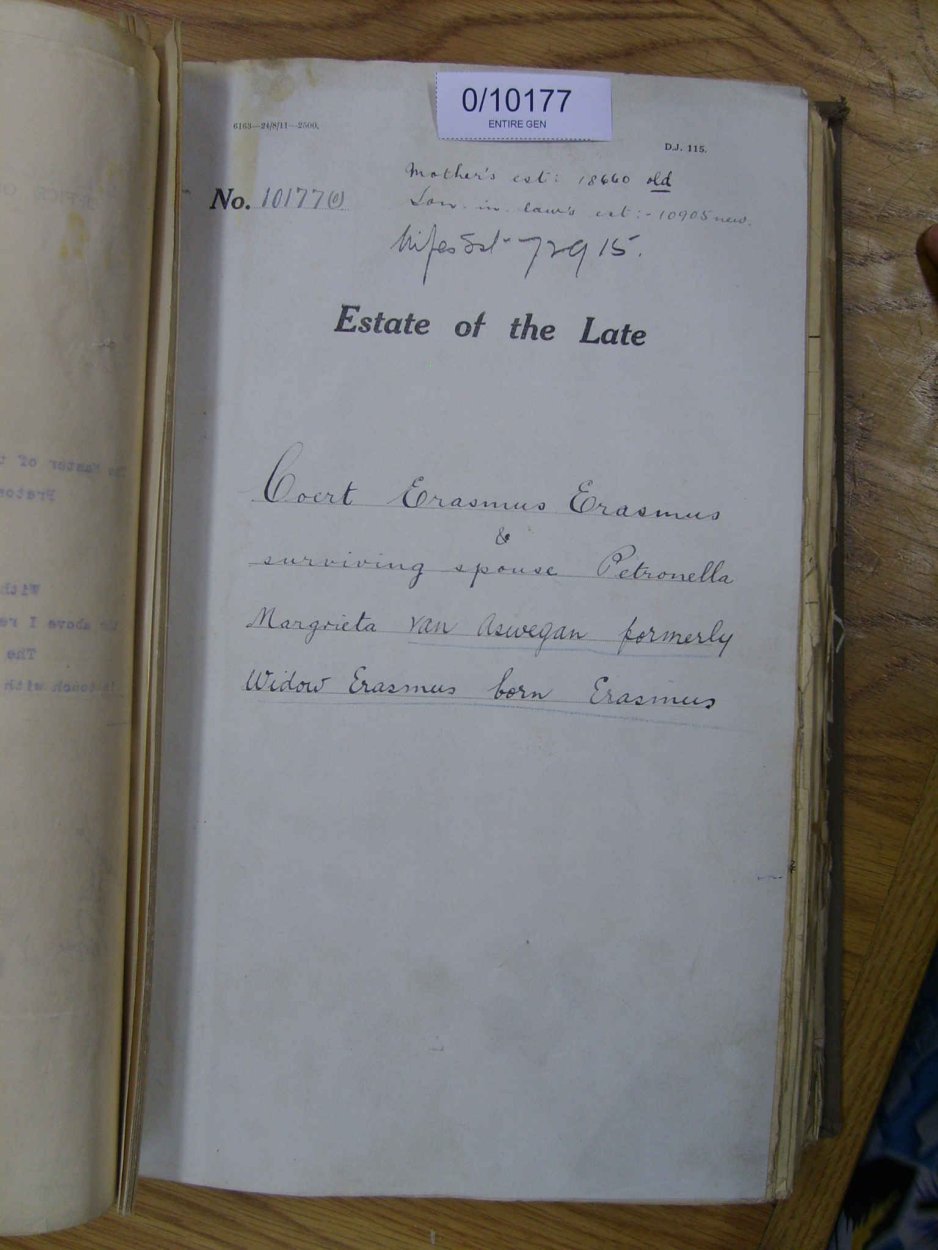 0/10177
ENTIRE GEN
6163—24/8/11—2500.
D.J. 115.
Mother's est: 18660 old
No. 10177(0)
Son. in. law's est:- 10905 new.
Wifes Est- 72915.
Estate of the Late
Coert Erasmus Erasmus
&
surviving spouse Petronella
Margrieta van Aswegan formerly
Widow Erasmus born Erasmus